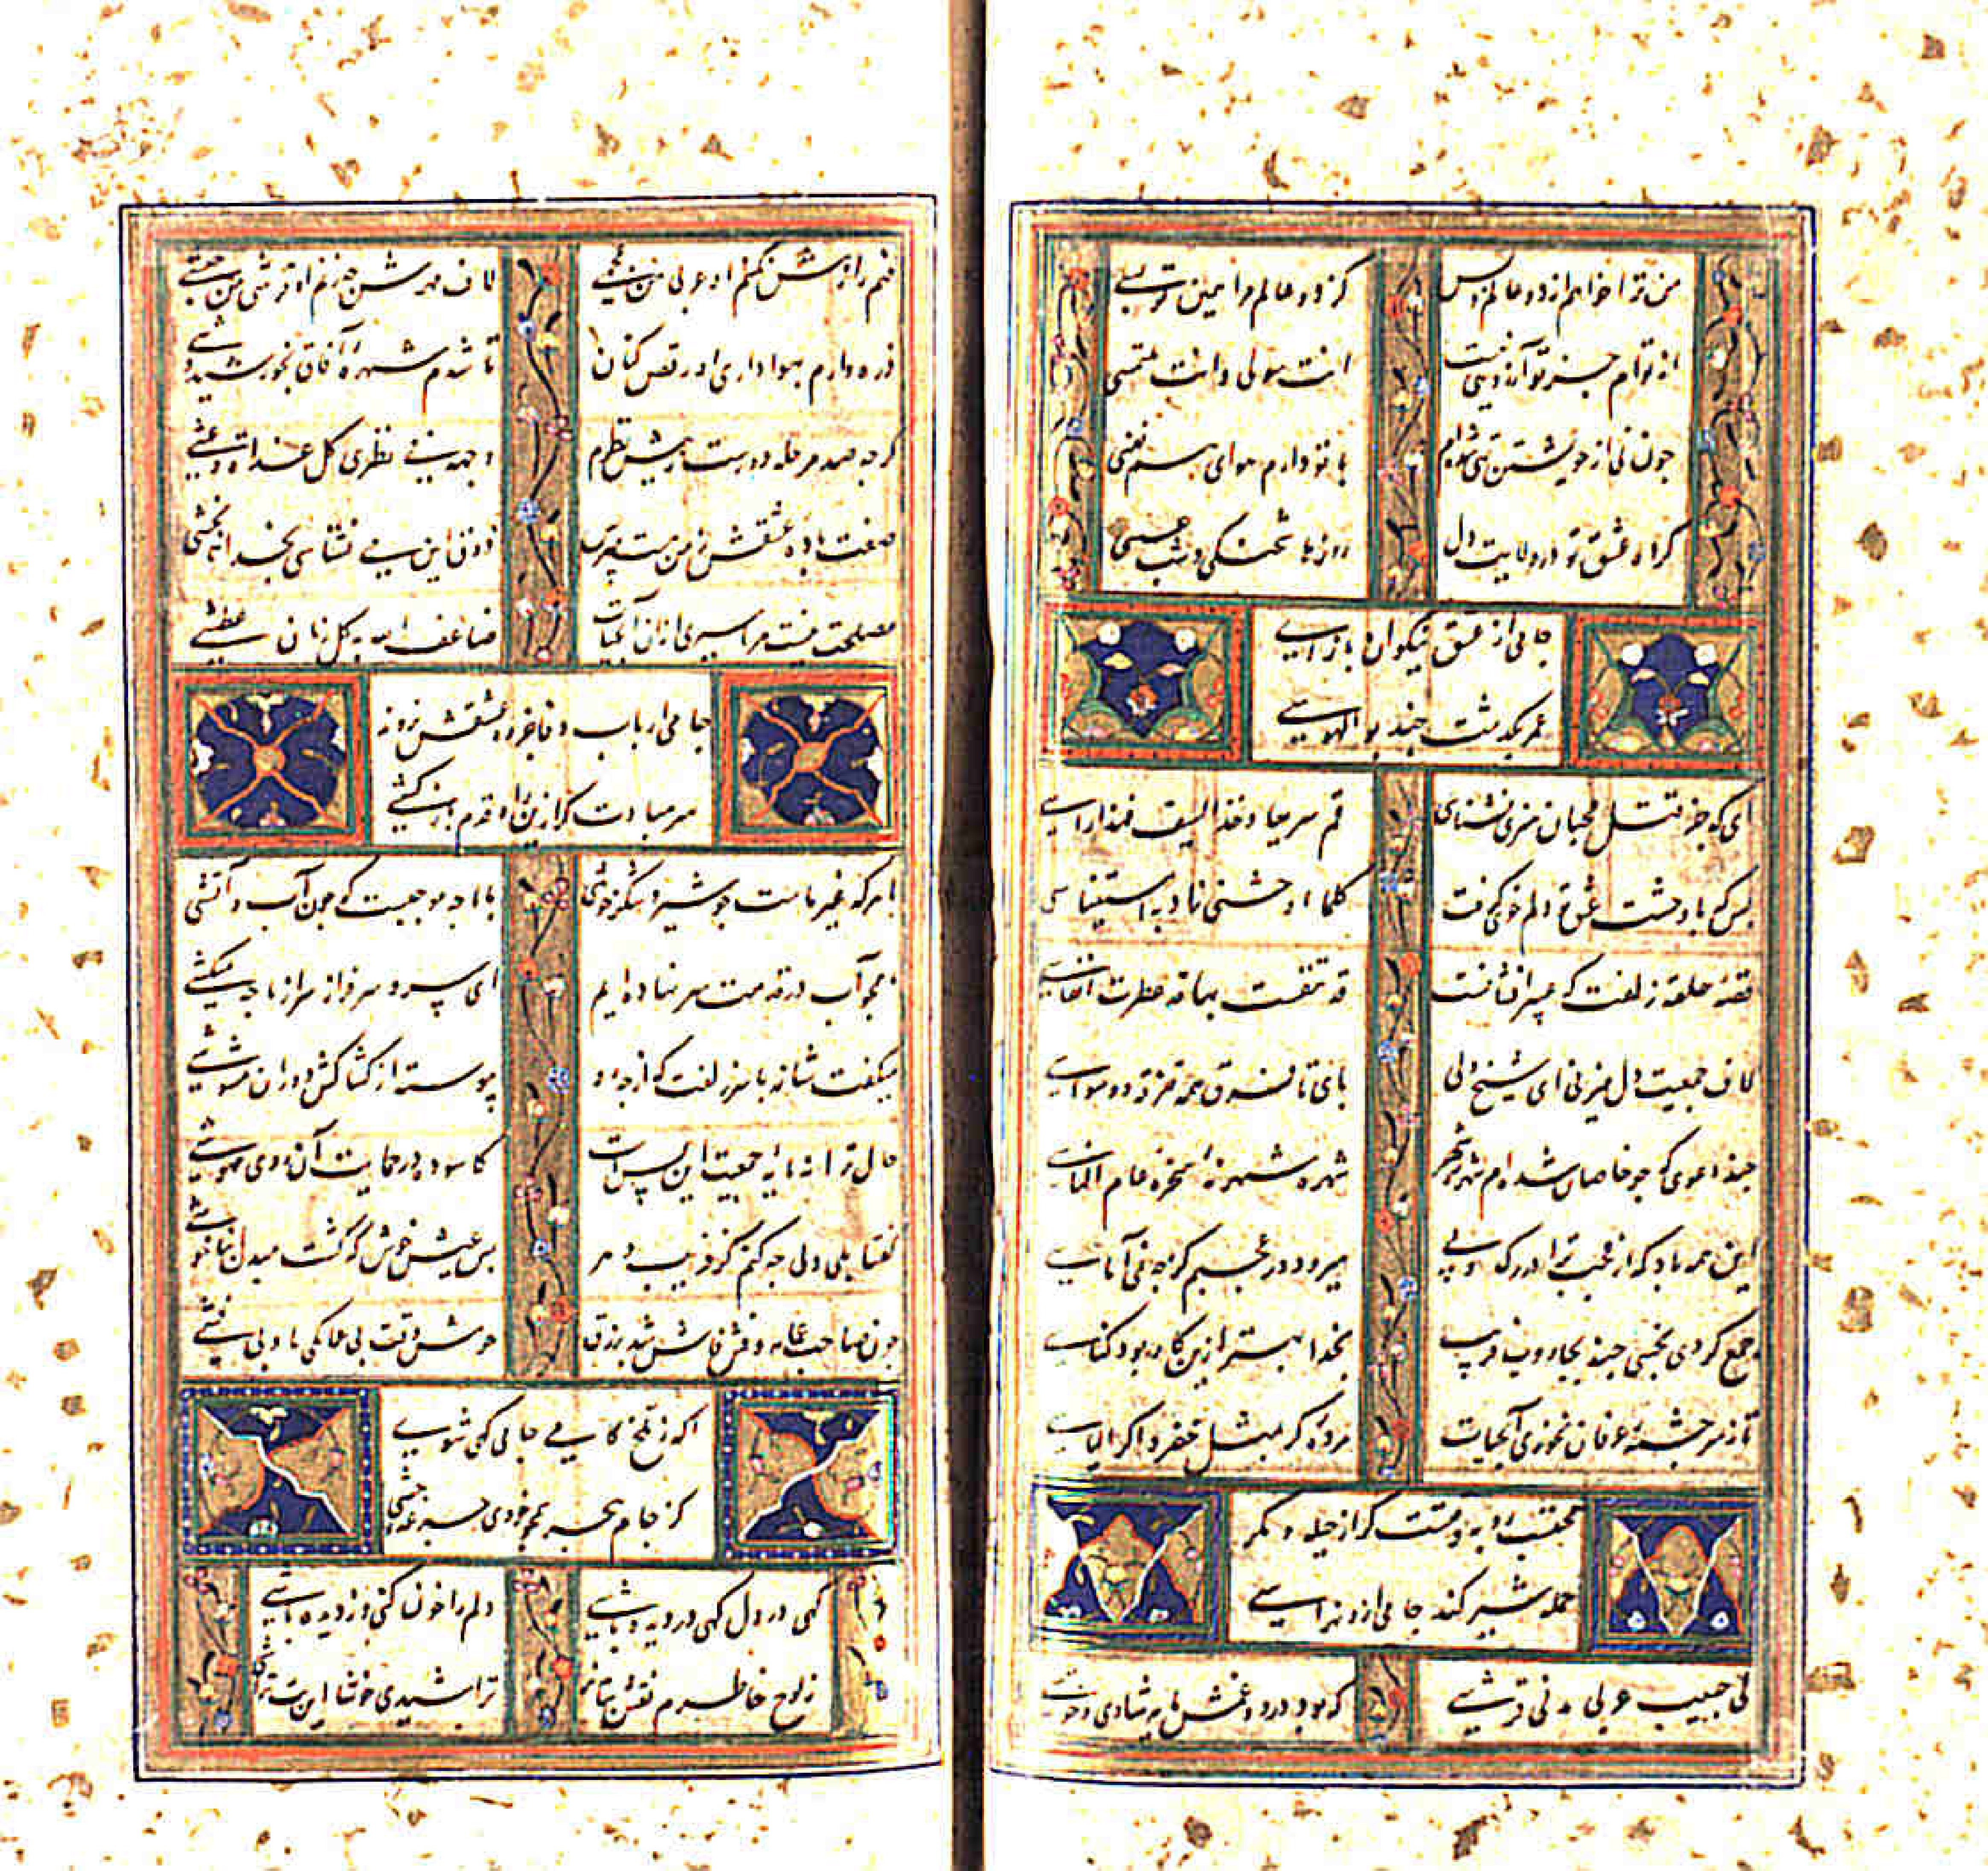 من ترا خواهم از دو عالم و بس
کز دو عالم مرا همین تو بسی
از توام جز تو آرزویی نیست
انت سولی و انت ملتمسی
چون نی از خویشتن تهی شده‌ام
با تو دارم هوای هم نفسی
کرد عشق تو در ولایت دل
روزها شحنگی و شب عسسی
جامی از عشق نیکوان بازآی
عمر بگذشت چند بوالهوسی
ای که جز قتل محبان هنری نشناسی
قم سریعا و خذ السیف فهذا راسی
بس که با وحشت عشق تو دلم خوی گرفت
کلما اوحشنی زاد به استیناسی
قصه حلقه زلفت که عبیر افشانست
قد تنفست بها قد عطرت انفاسی
لاف جمعیت دل میزنی ای شیخ ولی
پای تا فرق همه تفرقه و وسواسی
چند دعوی که چو خاصان شده‌ام شهره شهر
شهره شهر نه‌ای سخره عام الناسی
این همه باد که از عجب ترا در رگ و پی
میرود در عجبم گر چه نی آماسی
جمع کردی بخسی چند بجاروب فریب
بخدا بهتر ازین کار بود کناسی
تا ز سرچشمه عرفان نخوری آب حیات
مرده‌ای گر بمثل خضر و اگر الیاسی
محتسب روبه دشتست که از حیله و مکر
حمله شیر کند جامی ازو نهراسی
لی حبیب عربی مدنی قرشی
که بود درد و غمش مایه شادی و خوشی
فهم رازش نکنم او عربی من عجمی
لاف مهرش چه زنم او قرشی من حبشی
ذره وارم بهواداری او رقص کنان
تا شد او شهره آفاق بخورشیدوشی
گرچه صد مرحله دورست ز پیش نظرم
وجهه فی نظری کل غداة و عشی
صفت باده عشقش ز من مست مپرس
ذوق این می نشناسی بخدا تا نچشی
مصلحت نیست مرا سیری از آن آب حیات
ضاعف الله به کل زمان عطشی
جامی ارباب وفا جز ره عشقش نروند
سر مبادت گر ازین راه قدم بازکشی
با هر که غیر ماست چو شیر و شکر خوشی
با ما چه موجبست که چون آب و آتشی
همچو آب در قدمت سر نهاده‌ایم
ای سرو سرفراز سر از ما چه میکشی
میگفت شانه با سر زلفت که از چه رو
پیوسته از کشاکش دوران مشوشی
حال ترا نه مایه جمعیت این بس است
کاسوده در حمایت آن روی مهوشی
گفتا بلی ولی چه کنم کز فریب دهر
بس عیش خوش که گشت مبدل بناخوشی
چون صاحب عمامه و فش فاش شد بزرق
خوش وقت بی عمامگی ما و بی فشی
اگه ز تلخ کامی جامی گهی شوی
کز جام هجر همچو خودی جرعه‌ای چشی
گهی در دل گهی در دیده باشی
دلم را خون کنی وز دیده پاشی
ز لوح خاطرم نقش بتان را
تراشیدی خوشا این بت تراشی